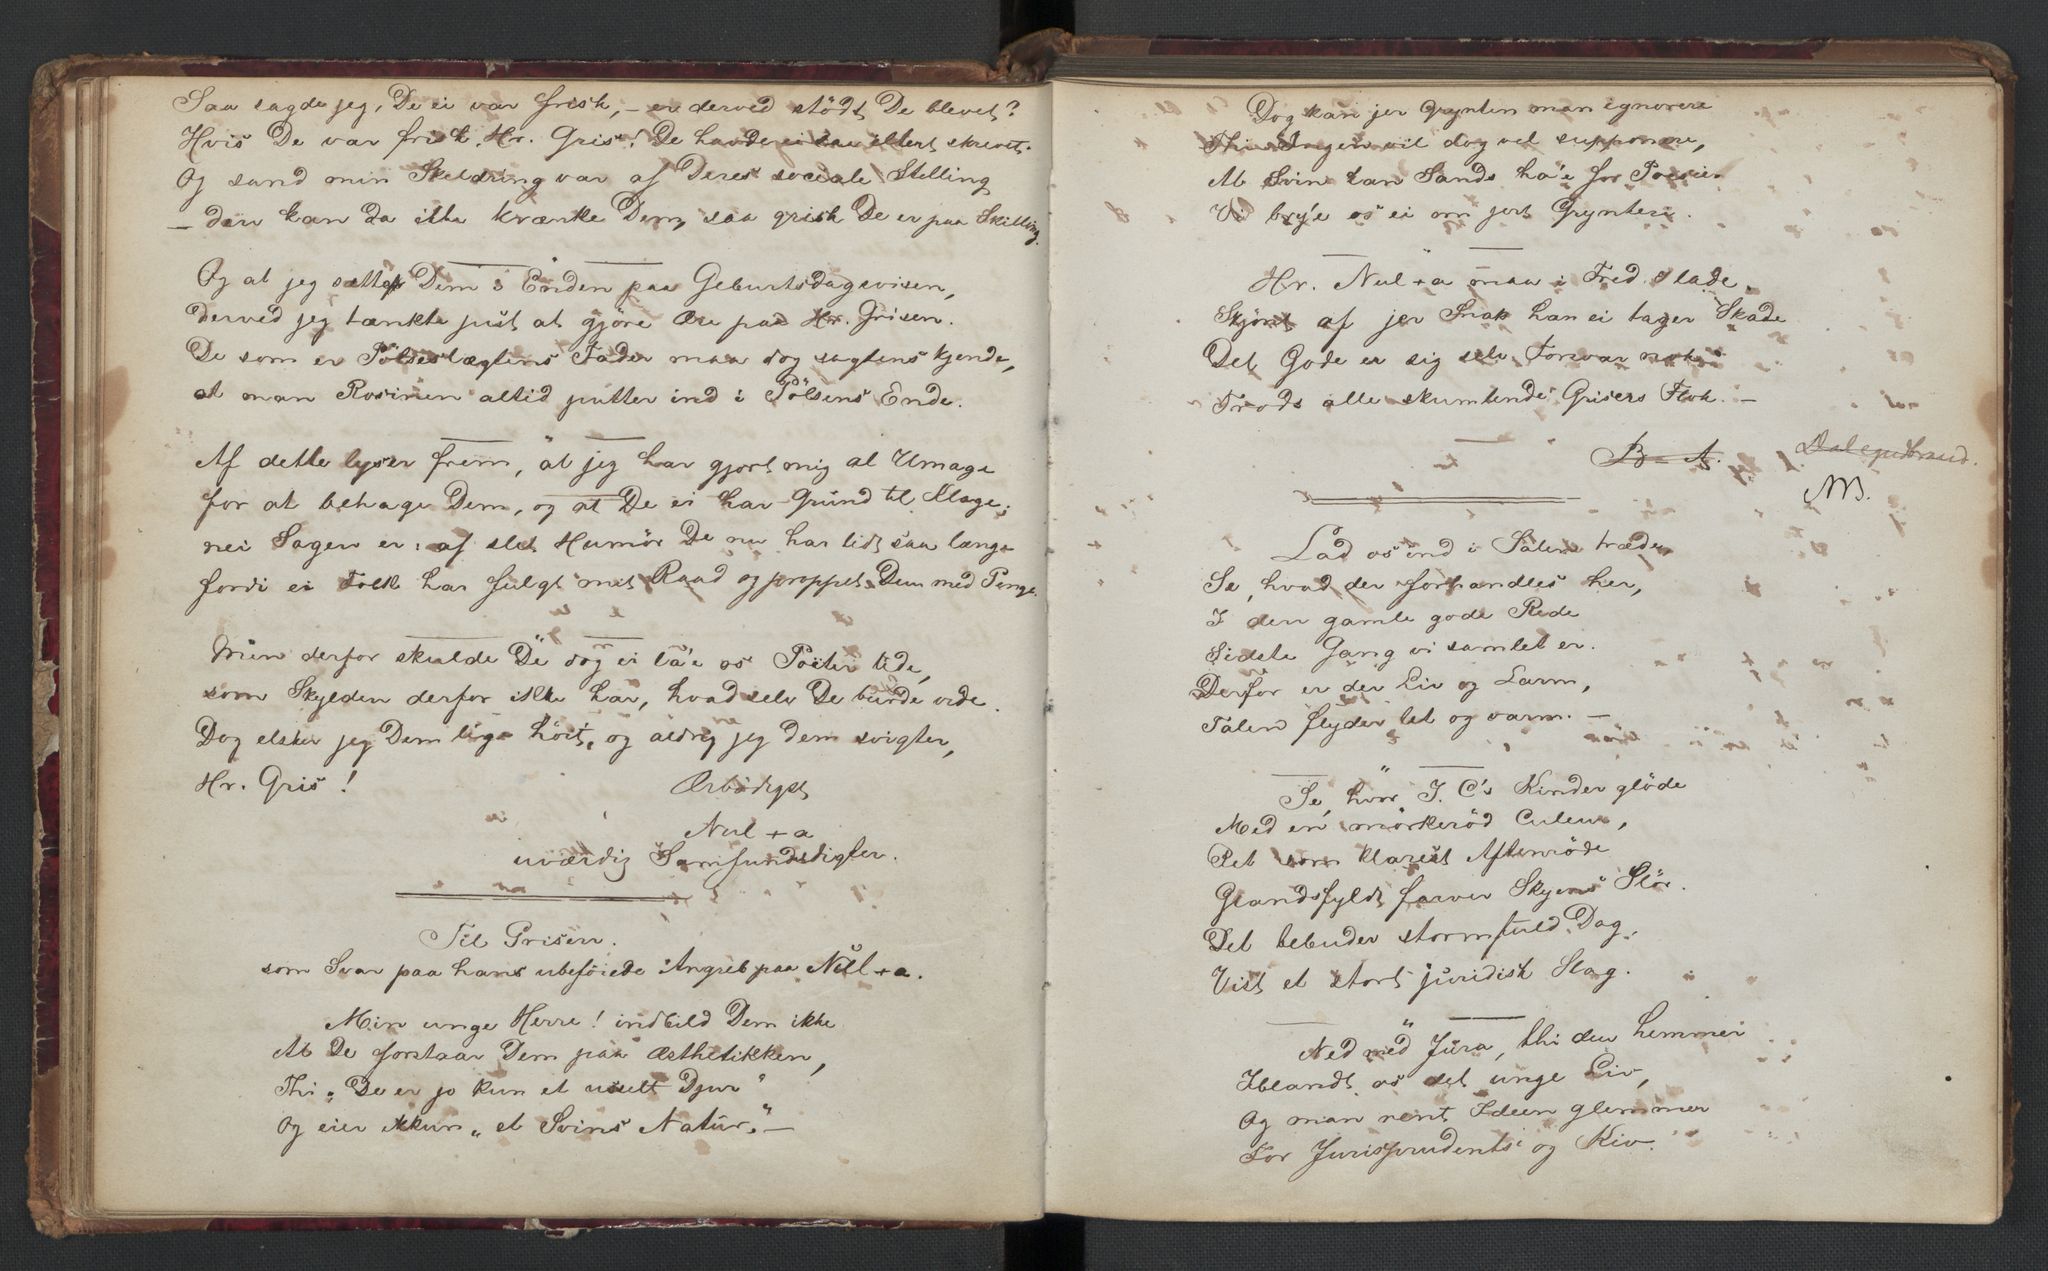 Saa sagde jeg, De ei var frisk, – er derved stödt De blevet?
Hvis De var frisk, Hr. Gris! De havde ei saa ilter skrevet.
Og sand min Skildring var af Deres sociale Stilling
– den kan da ikke krænke Dem, saa grisk De er paa Skilling.
Og at jeg satte Dem i Enden paa Geburtsdagsvisen,
derved jeg tænkte just at gjöre Ære paa Hr. Grisen.
De som er Pölseslægtens Fader maa dog sagtens kjende,
at man Rosinen altid putter ind i Pölsens Ende.
Af dette lyser frem, at jeg har gjort mig al Umage
for at behage Dem, og at De ei har Grund til Klage;
nei Sagen er: af slet Humör De nu har lidt saa længe
fordi ei Folk har fulgt mit Raad og proppet Dem med Penge.
Men derfor skulde De dog ei la'e os Poeter lide,
som Skylden derfor ikke har, hvad selv De burde vide.
Dog elsker jeg Dem lige höit, og aldrig jeg dem svigter,
Hr. Gris!
Ærbödigst
Nul + a
uværdig Samfundsdigter.
Til Grisen.
som Svar paa hans ubeföiede Angreb paa Nul + a.
Min unge Herre! indbild Dem ikke
At De forstaar Dem paa Æsthetikken,
Thi „De er jo kun et uselt Djur"
Og eier kun „et Svins Natur." –
Dog kan jer Grynten man ignorere
Thi Ingen vil dog vel supponere,
At Svin kan Sands ha'e for Poesi.
Vi bry'e os ei om jert Grynteri.
Hr. Nul + a maa i Fred I lade,
Skjönt af jer Snak han ei tager Skade
Det Gode er sig selv Forsvar nok
Trods alle skumlende Grisers Flok. –
B – A.
NB.
Lad os ind i Salen træde,
Se, hvad der forhandles her,
I den gamle gode Rede
Sidste Gang vi samlet er.
Derfor er der Liv og Larm,
Talen flyder let og varm. –
Se, hvor J. C's Kinder glöde
Med en mörkeröd Culeur,
Ret som klarest Aftenröde
Glandsfyldt farver Skyens Slör.
Det bebuder stormfuld Dag,
Vist et stort juridisk Slag.
Ned med Jura, thi den hemmer
Iblandt os det unge Liv,
Og man rent Ideen glemmer
For Jurisprudents og Kiv.